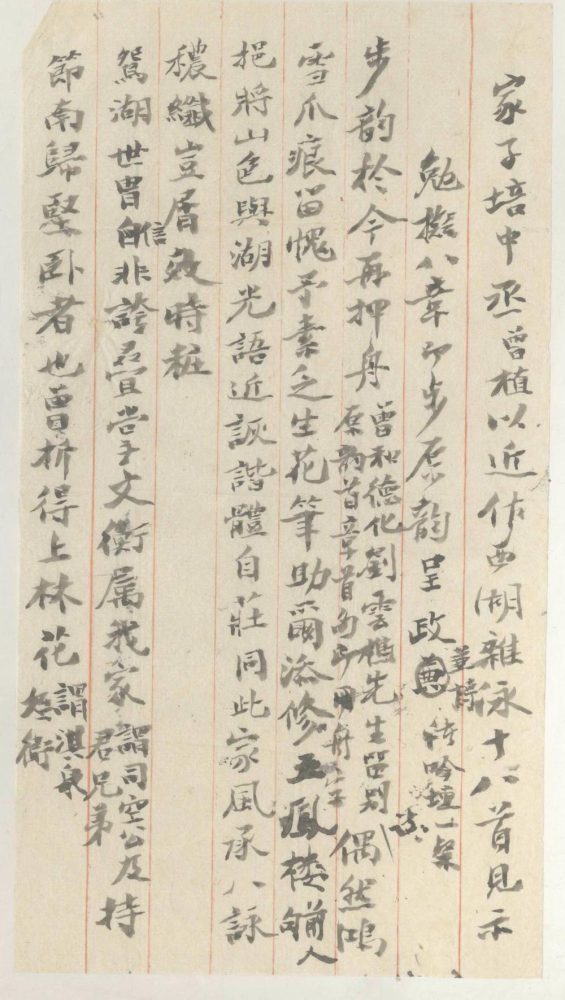 家子培中丞曾植以近作西湖雜詠十八首見示
勉擬八章即步原韵呈政並請 待吟壇一粲
步韵於今再押舟曾和德化劉雲樵先生留別原韵首章首句即用舟字偶然鴻
雪爪痕留愧予素乏生花筆助爾添修五鳳樓前人
挹將山色與湖光語近詼諧體自莊同此家風承八詠
穠纖豈屑效時粧
鴛湖世冑信非誇疊掌文衡属我家謂司空公及持君兄弟
節南歸堅卧者也曾折得上林花謂淇泉